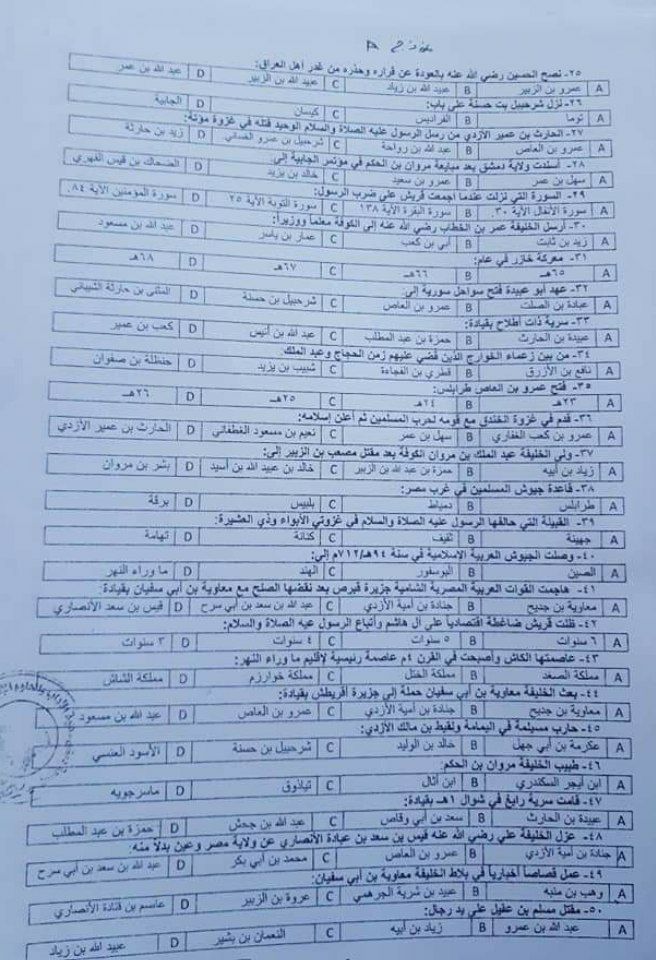 نموذج A
٢٥- نصح الحسين رضي الله عنه بالعودة عن قراره وحذره من غدر أهل العراق:
A عمرو بن الزبير B عبيد الله بن زياد C عبد الله بن الزبير D عبد الله بن عمر
٢٦- نزل شرحبيل بت حسنة على باب:
A توما B الفراديس C كيسان D الجابية
٢٧- الحارث بن عمير الأزدي من رسل الرسول عليه الصلاة والسلام الوحيد قتله في غزوة مؤتة:
A عمرو بن العاص B عبد الله بن رواحة C شرحبيل بن عمرو الغساني D زيد بن حارثة
٢٨- أسندت ولاية دمشق بعد مبايعة مروان بن الحكم في مؤتمر الجابية إلى:
A سهل بن عمر B عمرو بن سعيد C خالد بن يزيد D الضحاك بن قيس الفهري
٢٩- السورة التي نزلت عندما اجمعت قريش على ضرب الرسول:
A سورة الأنفال الآية ٣٠. B سورة البقرة الآية ١٣٨ C سورة التوبة الآية ٢٥ D سورة المؤمنين الآية ٨٤.
٣٠- أرسل الخليفة عمر بن الخطاب رضي الله عنه إلى الكوفة معلماً ووزيراً:
A زيد بن ثابت B أبي بن كعب C عمار بن ياسر D عبد الله بن مسعود
٣١- معركة خازر في عام:
A ٦٥هـ B ٦٦هـ C ٦٧هـ D ٦٨هـ
٣٢- عهد أبو عبيدة فتح سواحل سورية إلى:
A عبادة بن الصلت B عمرو بن العاص C شرحبيل بن حسنة D المثنى بن حارثة الشيباني
٣٣- سرية ذات أطلاح بقيادة:
A عبيدة بن الحارث B حمزة بن عبد المطلب C عبد الله بن أنيس D كعب بن عمير
٣٤- من بين زعماء الخوارج الذين قضي عليهم زمن الحجاج وعبد الملك:
A نافع بن الأزرق B قطري بن الفجاءة C شبيب بن يزيد D حنظلة بن صفوان
٣٥- فتح عمرو بن العاص طرابلس:
A ٢٣هـ B ٢٤هـ C ٢٥هـ D ٢٦هـ
٣٦- قدم في غزوة الخندق مع قومه لحرب المسلمين ثم أعلن إسلامه:
A عمرو بن كعب الغفاري B سهل بن عمر C نعيم بن مسعود الغطفاني D الحارث بن عمير الأزدي
٣٧- ولى الخليفة عبد الملك بن مروان الكوفة بعد مقتل مصعب بن الزبير إلى:
A زياد بن أبيه B حمزة بن عبد الله بن الزبير C خالد بن عبيد الله بن أسيد D بشر بن مروان
٣٨- قاعدة جيوش المسلمين في غرب مصر:
A طرابلس B دمياط C بلبيس D برقة
٣٩- القبيلة التي حالفها الرسول عليه الصلاة والسلام في غزوتي الأبواء وذي العشيرة:
A جهينة B ثقيف C كنانة D تهامة
٤٠- وصلت الجيوش العربية الإسلامية في سنة ٩٤هـ/٧١٢م إلى:
A الصين B البوسفور C الهند D ما وراء النهر
٤١- هاجمت القوات العربية المصرية الشامية جزيرة قبرص بعد نقضها الصلح مع معاوية بن أبي سفيان بقيادة:
A معاوية بن حديج B جنادة بن أمية الأزدي C عبد الله بن سعد بن أبي سرح D قيس بن سعد الأنصاري
٤٢- ظلت قريش ضاغطة اقتصادياً على آل هاشم وأتباع الرسول عيه الصلاة والسلام:
A ٦ سنوات B ٥ سنوات C ٤ سنوات D ٣ سنوات
٤٣- عاصمتها الكاش وأصبحت في القرن ٤م عاصمة رئيسية لإقليم ما وراء النهر:
A مملكة الصغد B مملكة الختل C مملكة خوارزم D مملكة الشاش
٤٤- بعث الخليفة معاوية بن أبي سفيان حملة إلى جزيرة أقريطش بقيادة:
A معاوية بن حديج B جنادة بن أمية الأزدي C عمرو بن العاص D عبد الله بن مسعود
٤٥- حارب مسيلمة في اليمامة ولقيط بن مالك الأزدي:
A عكرمة بن أبي جهل B خالد بن الوليد C شرحبيل بن حسنة D الأسود العنسي
٤٦- طبيب الخليفة مروان بن الحكم:
A ابن أبجر السكندري B ابن أثال C تياذوق D ماسرجويه
٤٧- قامت سرية رابغ في شوال ١هـ بقيادة:
A عبيدة بن الحارث B سعد بن أبي وقاص C عبد الله بن جحش D حمزة بن عبد المطلب
٤٨- عزل الخليفة علي رضي الله عنه قيس بن سعد بن عبادة الأنصاري عن ولاية مصر وعين بدلاً منه:
A جنادة بن أمية الأزدي B عمرو بن العاص C محمد بن أبي بكر D عبد الله بن سعد بن أبي سرح
٤٩- عمل قصاصاً أخبارياً في بلاط الخليفة معاوية بن أبي سفيان:
A وهب بن منبه B عبيد بن شرية الجرهمي C عروة بن الزبير D عاسم بن قتادة الأنصاري
٥٠- مقتل مسلم بن عقيل على يد رجال:
A عبد الله بن عمرو B زياد بن أبيه C النعمان بن بشير D عبيد الله بن زياد